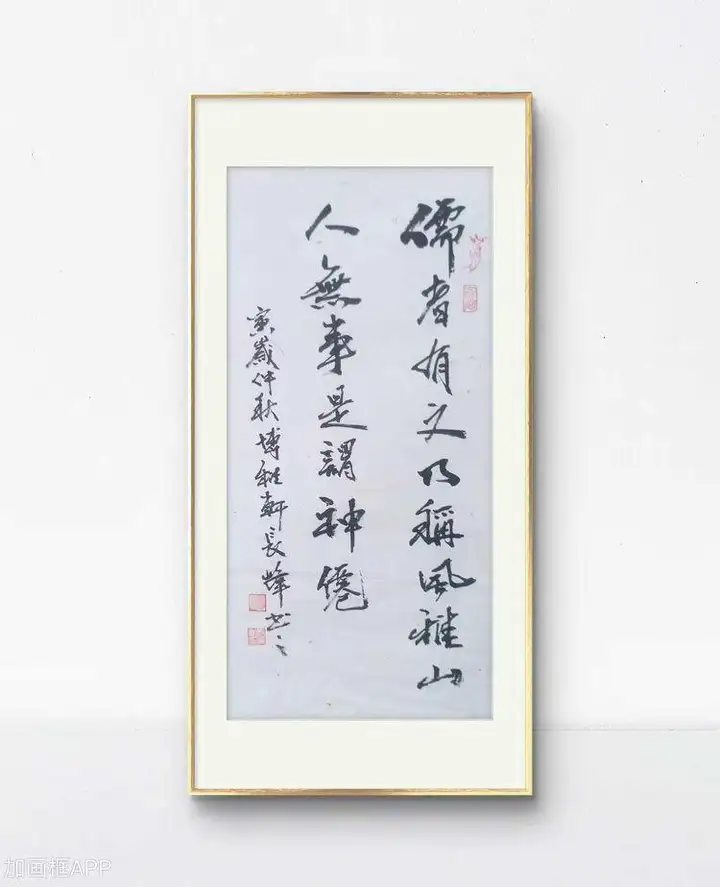 儒者有文乃稱風雅山
人無事是謂神僊
寅歲仲秋博雅軒長峰书之
加画框APP